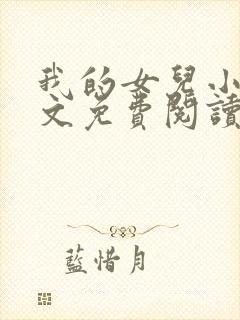 我的女兒小
文免費閱讀
藍惜月